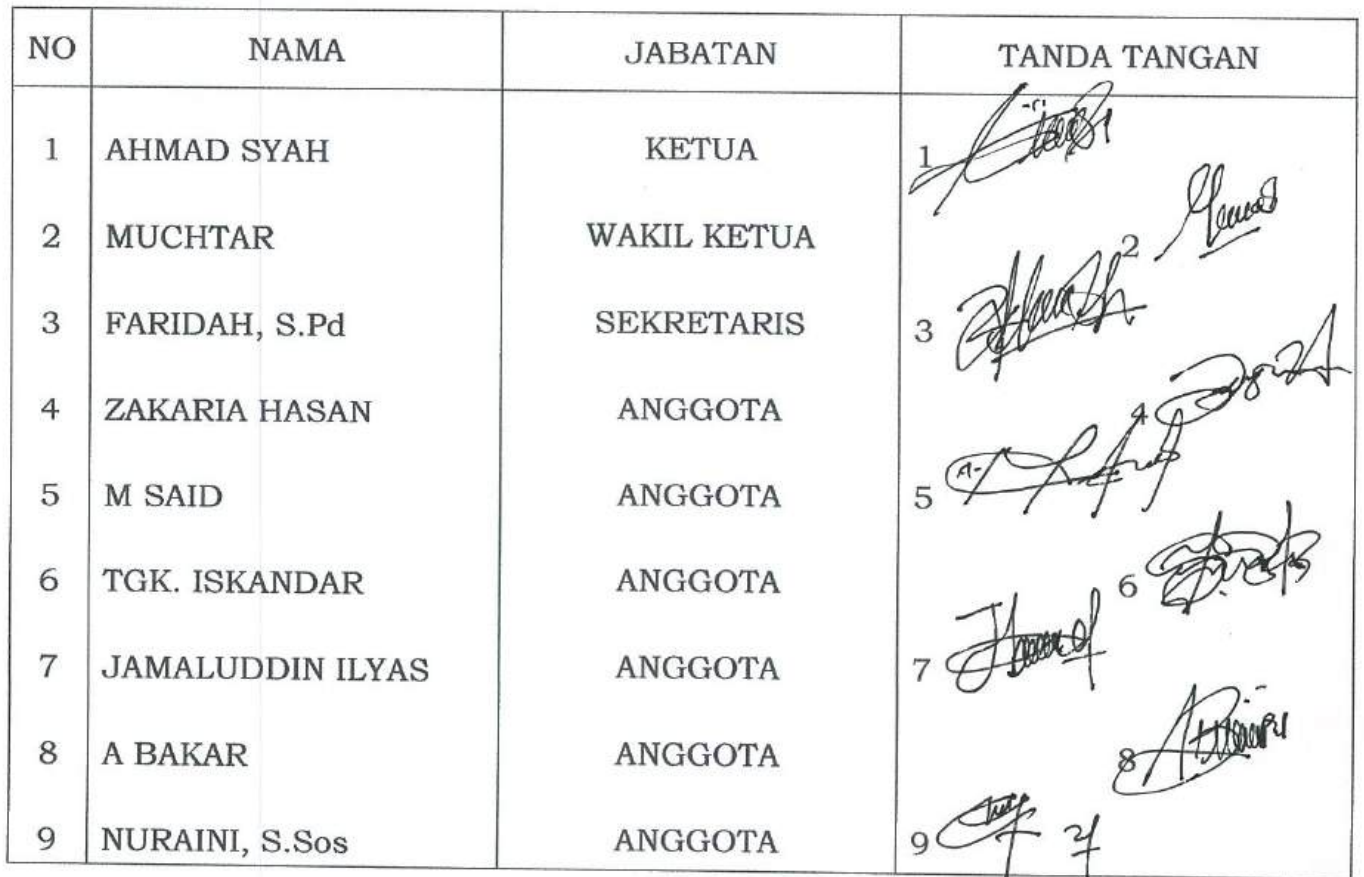 NO NAMA JABATAN TANDA TANGAN
1 AHMAD SYAH KETUA 1
2 MUCHTAR WAKIL KETUA 2
3 FARIDAH, S.Pd SEKRETARIS 3
4 ZAKARIA HASAN ANGGOTA 4
5 M SAID ANGGOTA 5
6 TGK. ISKANDAR ANGGOTA 6
7 JAMALUDDIN ILYAS ANGGOTA 7
8 A BAKAR ANGGOTA 8
9 NURAINI, S.Sos ANGGOTA 9